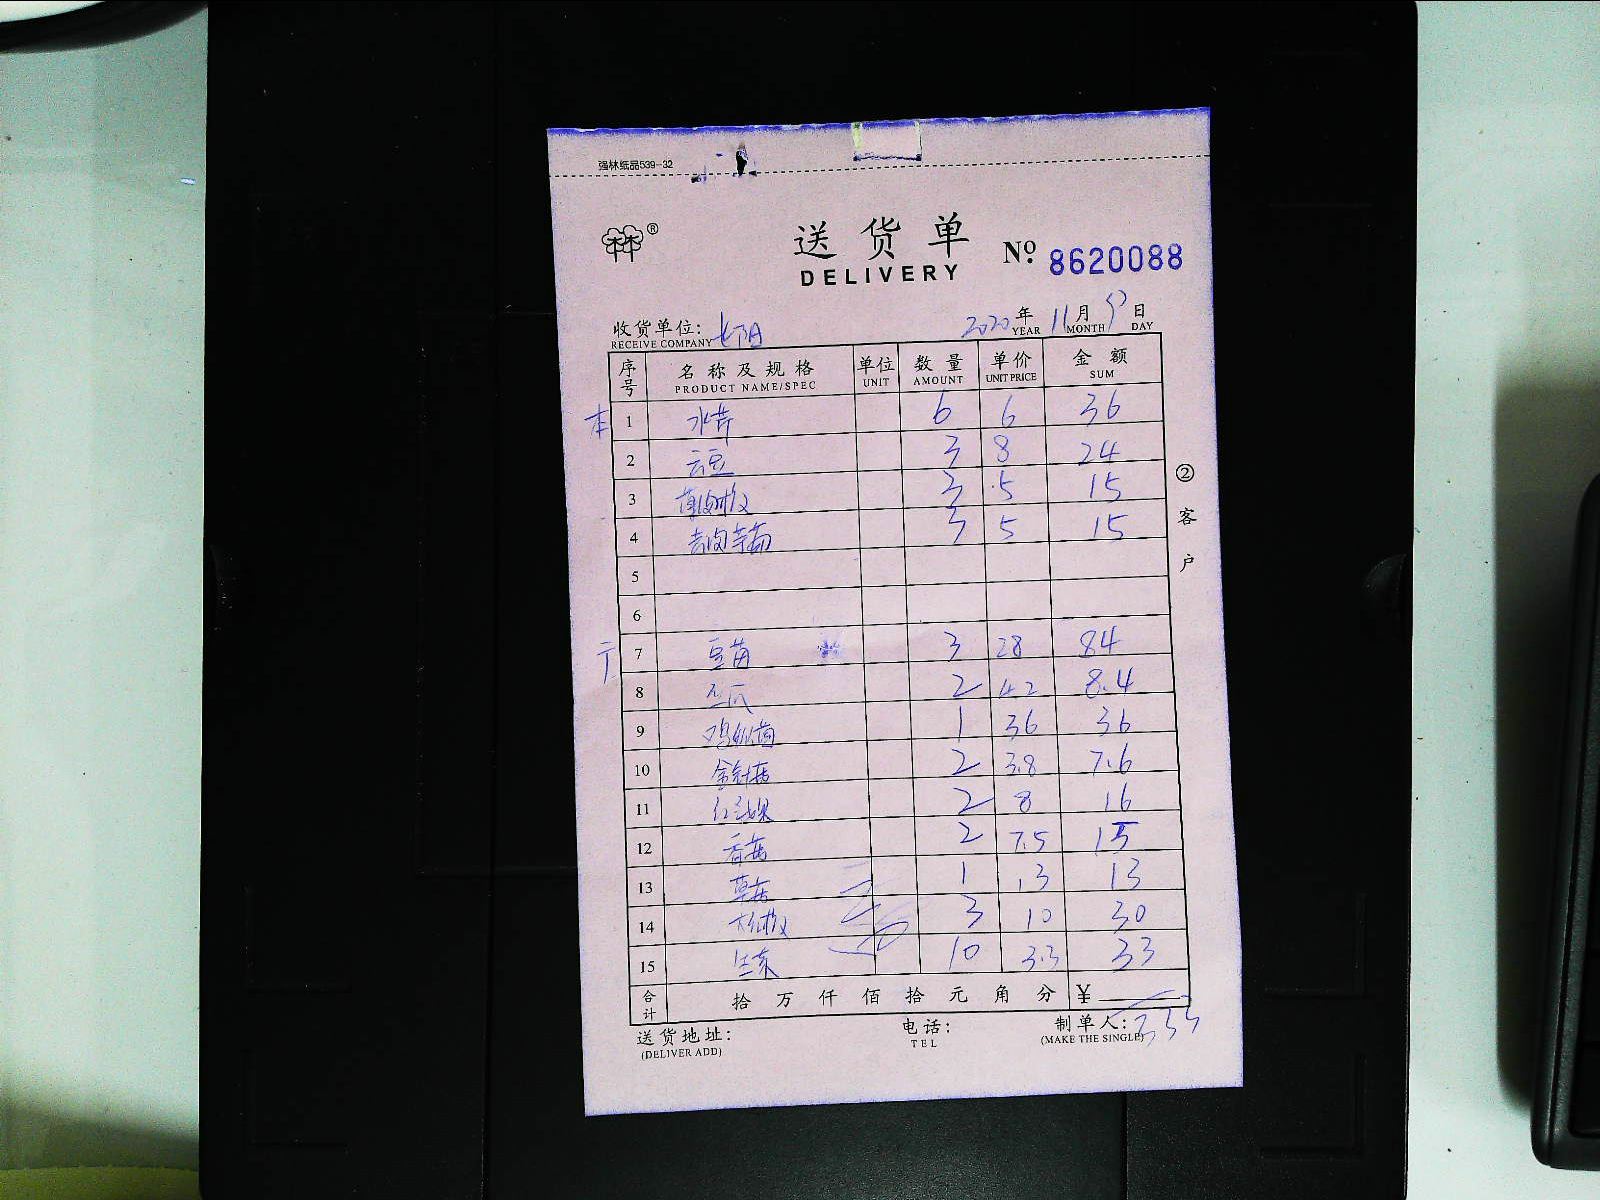 强林纸品539-32
®
送货单
DELIVERY
Nº 8620088
收货单位:
RECEIVE COMPANY
2020年 11月 日
YEAR MONTH DAY
序号 名称及规格 单位 数量 单价 金额
PRODUCT NAME/SPEC UNIT AMOUNT UNIT PRICE SUM
本 1 水芹 6 6 36
2 云豆 3 8 24
3 3 5 15
4 3 5 15
5
6
7 豆苗 3 28 84
8 2 4.2 8.4
9 1 36 36
10 金针菇 2 3.8 7.6
11 2 8 16
12 香菇 2 7.5 15
13 草菇 1 13 13
14 3 10 30
15 生菜 10 3.3 33
合计 拾 万 仟 佰 拾 元 角 分 ¥
333
送货地址:
(DELIVER ADD)
电话:
TEL
制单人:
(MAKE THE SINGLE)
②客户